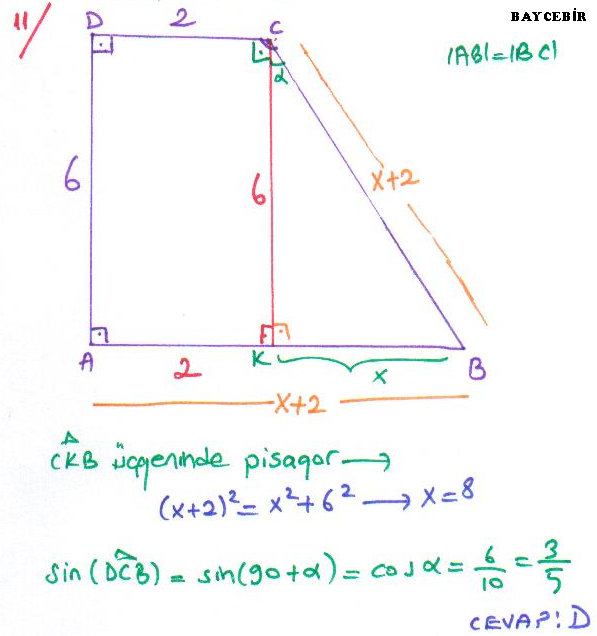 11/
BAYCEBİR
D 2 C
|AB|=|BC|
α
6
6
x+2
A 2 K x B
x+2
CKB üçgeninde pisagor →
(x+2)² = x² + 6² → x = 8
sin(DCB) = sin(90+α) = cosα = 6/10 = 3/5
CEVAP: D